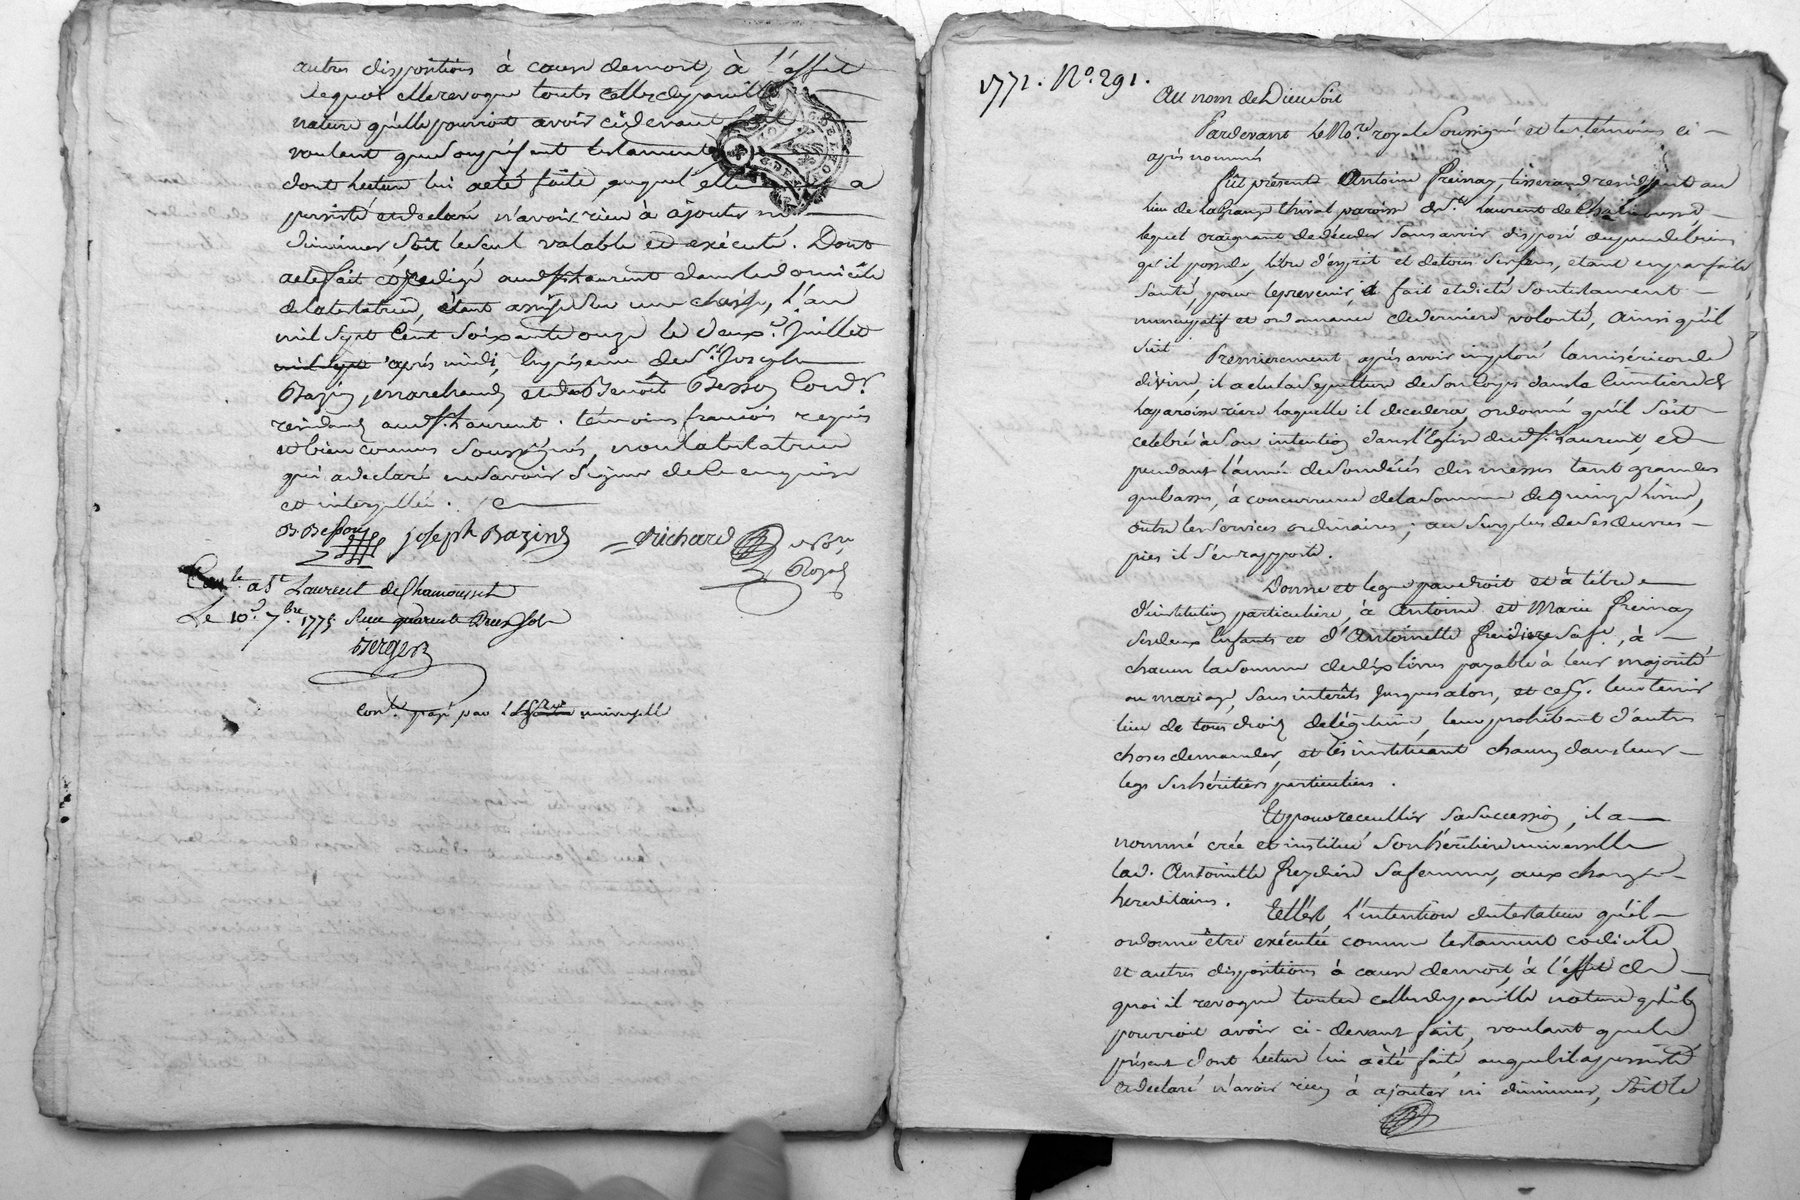 autres dispositions à cause demort, à l'effet
dequoi elle revoque toutes celles de pareille
nature qu'elle pourroit avoir cidevant
voulant que son présent testament
dont lecture lui a eté faite, auquel elle a
persisté et declaré n'avoir rien à ajouter ni
diminuer soit le seul valable et exécuté. Dont
acte fait et rédigé audit St Laurent dans le domicile
de la testatrice, étant assise sur une chaise, l'an
mil sept Cent Soixante onze le deux.e Juillet
mil sept après midi, En présence de Sr Joseph
Bazin, marchand, et de Benoît Besson Cord.r
résidants audit St Laurent. témoins francois requis
et bien connus Soussignés, non la testatrice
qui a declaré ne savoir Signer de ce enquise
et interpellée.
B. Besson Joseph Bazin Richard no.re
Royal
Con.lé a St Laurent de Chamousset
Le 10.e 7.bre 1775 Recu quarente Deux sols
Berger
Con.le payé par l'heritiere universelle
1771. No. 291.
Au nom de Dieu Soit
Pardevant le No.re royal Soussigné et les témoins ci-
après nommés
fût présent Antoine freinay, tisserand residant au
lieu de la Grange thival paroisse de St. Laurent de Chamousset,
lequel craignant de décéder sans avoir disposé du peu de biens
qu'il possede, libre d'esprit et de tous ses sens, etant en parfaite
Santé, pour le prévenir, a fait et dicté son testament
nuncupatif et ordonnance de derniere volonté, Ainsi qu'il
suit
Premierement après avoir imploré la miséricorde
divine, il a elu la Sepulture de son Corps dans le Cimetiere de
la paroisse riere laquelle il decedera, ordonné qu'il soit
celebré à son intention dans l'Eglise dudit St Laurent, et
pendant l'année de son décès des messes tant grandes
que basses, à concurrence de la somme de quinze livres,
outre les Services ordinaires; au surplus de ses œuvres
pies il s'en rapporte.
Donne et legue par droit et à titre
d'institution particuliere, à Antoine et Marie freinay
ses deux Enfants et d'Antoinette freidiere sa fe., à
chacun la somme de dix livres payable à leur majorité
ou mariage, sans intérêts jusques alors, et ce pr. leur tenir
lieu de tous droits de légitime, leur prohibant d'autres
choses demander, et les instituant chacun dans leur
legs ses héritiers particuliers.
Et pour recueillir sa succession, il a
nommé crée et institué son héritiere universelle
lad. Antoinette freydiere sa femme, aux charges
hereditaires.
Telle est l'intention du testateur qu'il
ordonne être exécutée comme testament codicile
et autres dispositions à cause demort, à l'effet de
quoi il revoque toutes celles de pareille nature qu'il
pourroit avoir ci-devant fait, voulant que le
présent dont lecture lui a été faite, auquel il a persisté
et declaré n'avoir rien à ajouter ni diminuer, soit le